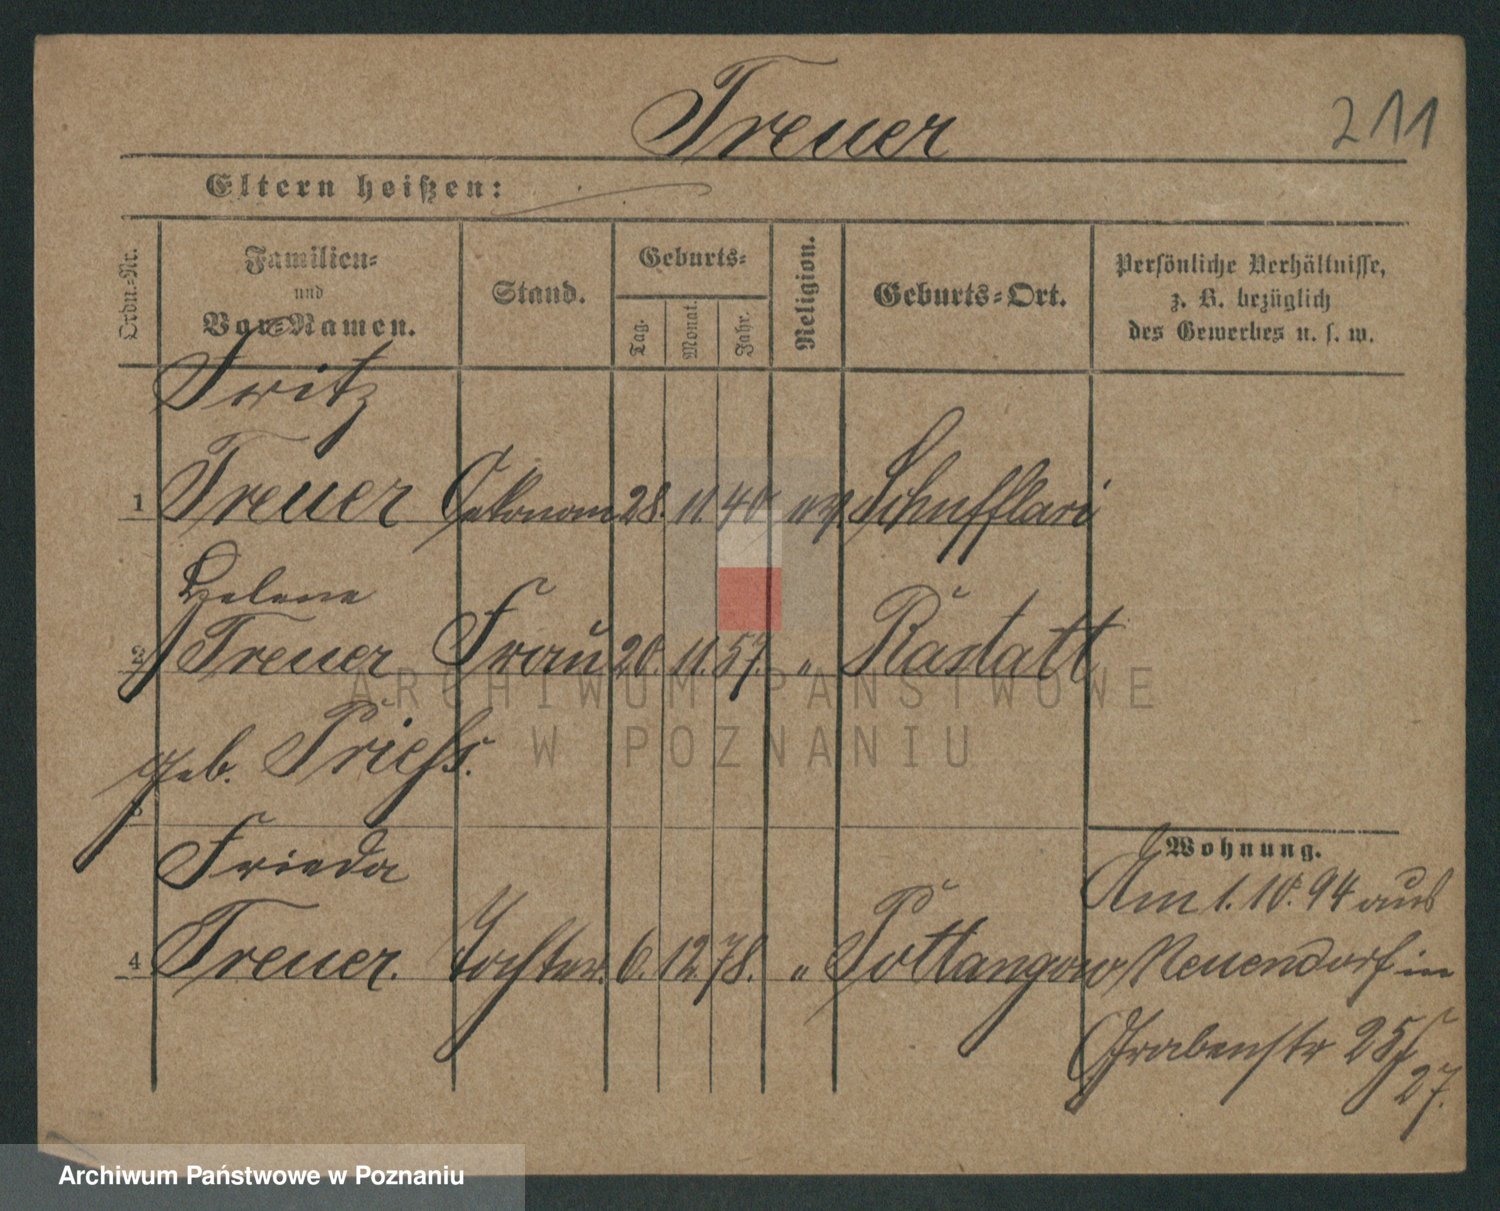 Treuer
211
Eltern heißen:
Ordn.-Nr.
Familien- und Vor-Namen.
Stand.
Geburts-
Tag.
Monat.
Jahr.
Religion.
Geburts-Ort.
Persönliche Verhältnisse,
z. B. bezüglich
des Gewerbes u. s. w.
Fritz
1 Treuer Oekonom 28. 11. 40 ev. Schufflari
Helene
2 Treuer Frau 20. 11. 57. " Rastatt
geb. Priefs.
3
Wohnung.
Frieda
Am 1. 10. 94 aus
4 Treuer. Tochter. 6. 12. 78. " Pottangow Neuendorf in
Grabenstr 25/
27.
ARCHIWUM PAŃSTWOWE
W POZNANIU
Archiwum Państwowe w Poznaniu